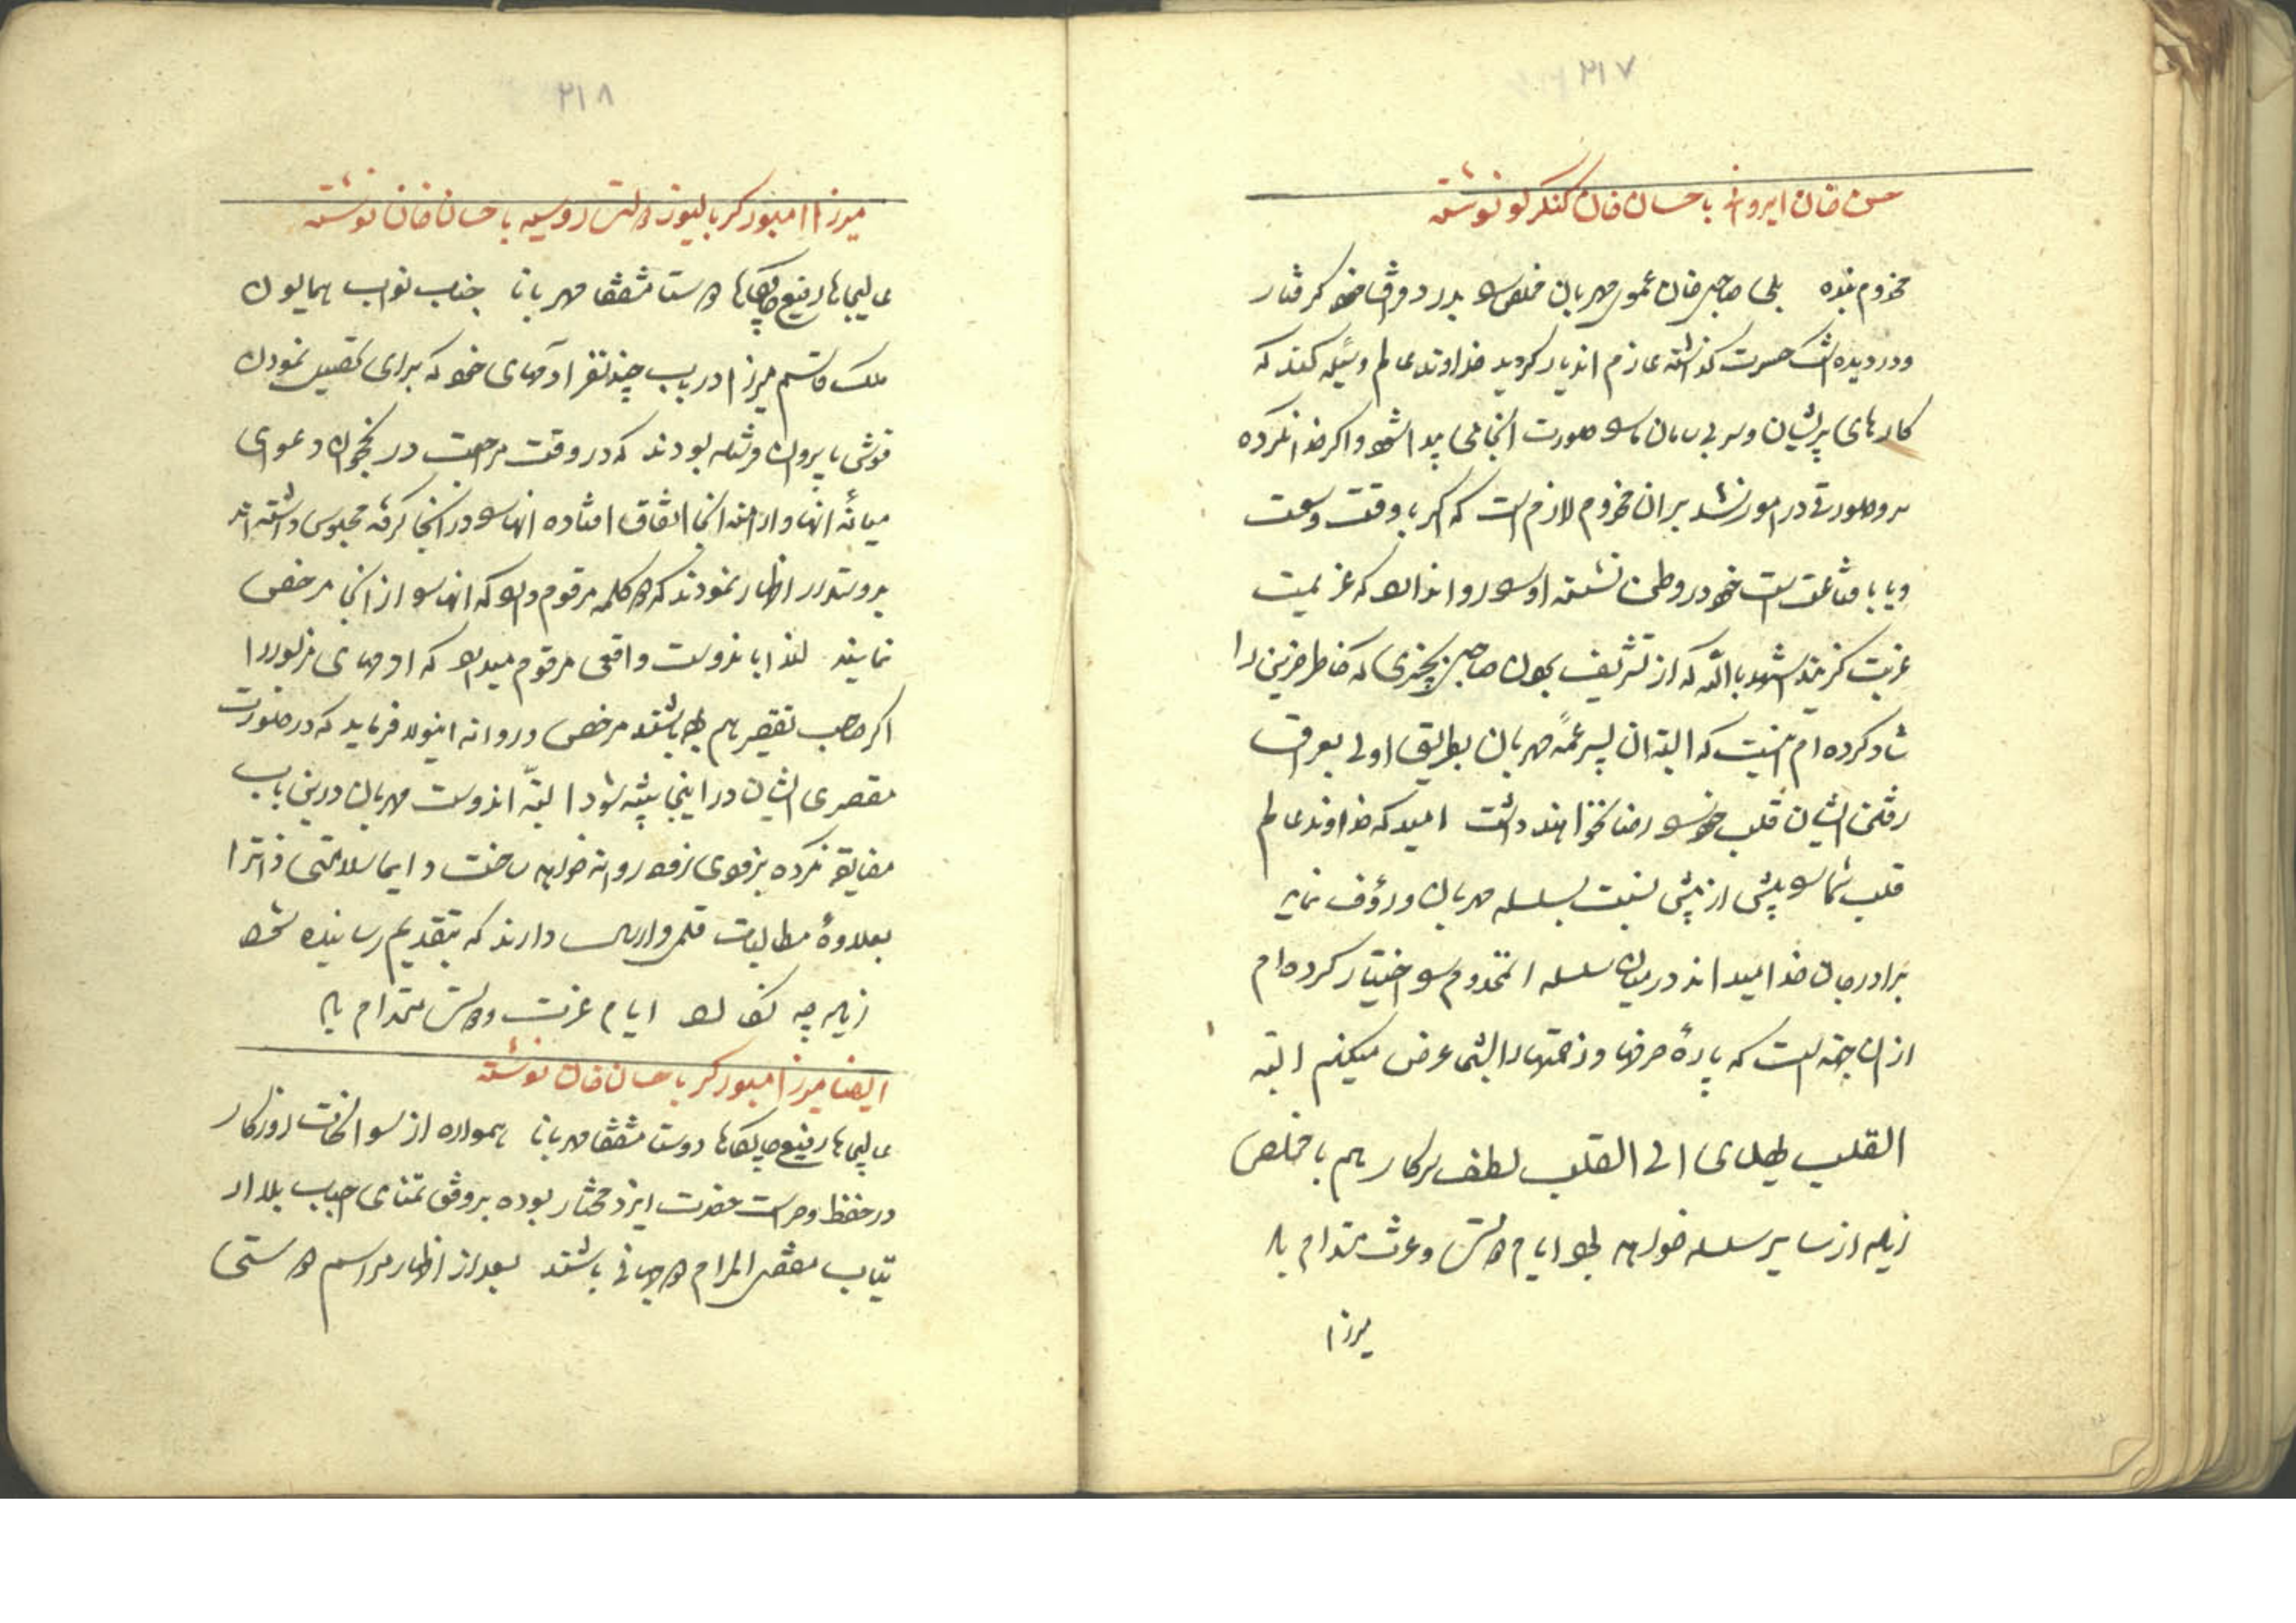 ۲۱۷
حسن خان ایروانی باحسان خان کنگرلو نوشته
مخدوم بنده بلی صاحبی خان عموی مهربان مخلص را بدرد فراق خود گرفتار
و در دیده اشک حسرت گذاشته عازم اندیار گردید خداوند عالم وسیله کند که
کارهای پریشان و سر بی سامان ما را صورت انجامی پیدا شود و اگر خدا نکرده
سر و صورتی در امور نشد بر ان مخدوم لازم است که اگر با وقت وسعت
و یا با قناعت است خود در وطن نشسته او را روا ندارد که عزیمت
غربت گزیند شهد بالله که از تشریف بردن صاحبی بچیزی که خاطر حزین را
شاد کرده ام اینست که البته ان پسر عمه مهربان بطریق اولی بعراق
رفتن ایشان قلب خود را رضا نخواهند داشت امید که خداوند عالم
قلب شما را پیش از پیش نسبت بسلسله مهربان و رؤف نماید
برادر جان خدا میداند در میان سلسله المخدوم را اختیار کرده ام
از ان جهة است که پارهٔ حرفها و زحمتها را بشما عرض میکنم البته
القلب یهدی الی القلب لطف سرکار هم با مخلص
زیاده از سایر سلسله خواهد بود ایام دولت و عزت مستدام باد
میرزا
۲۱۸
میرزا امبورکر بالیوز دولت روسیه باحسان خان نوشته
عالیجاها رفیع جایگاها دوستا مشفقا مهربانا جناب نواب همایون
ملک قاسم میرزا در باب چند نفر آدمهای خود که برای تحصیل نمودن
قوشی بایروان فرستاده بودند که در وقت مراجعت در نخجوان دعوای
میانه انها و ارامنه انجا اتفاق افتاده انها را در انجا گرفته محبوس داشته اند
بدوستدار اظهار نمودند که دو کلمه مرقوم دارد که انها را از انجا مرخص
نمایند لهذا باندوست واقعی مرقوم میدارد که ادمهای مزبور را
اگر صاحب تقصیر هم بوده باشند مرخص و روانه اینولا فرماید که در صورت
مقصری ایشان در اینجا تنبیه شود البته اندوست مهربان درین باب
مضایقه نکرده بزودی زود روانه خواهد ساخت دایما سلامتی ذاترا
بعلاوهٔ مطالبات قلمی و ارسال دارند که بتقدیم رسانیده شود
زیاده چه نگارد ایام عزت و دولت مستدام باد
ایضا میرزا امبورکر باحسان خان نوشته
عالیجاها رفیع جایگاها دوستا مشفقا مهربانا همواره از سوانحات روزگار
در حفظ و حراست حضرت ایزد مختار بوده بر وفق تمنای احباب بلا ارتیاب
مقضی المرام دو جهانی باشند بعد از اظهار مراسم دوستی